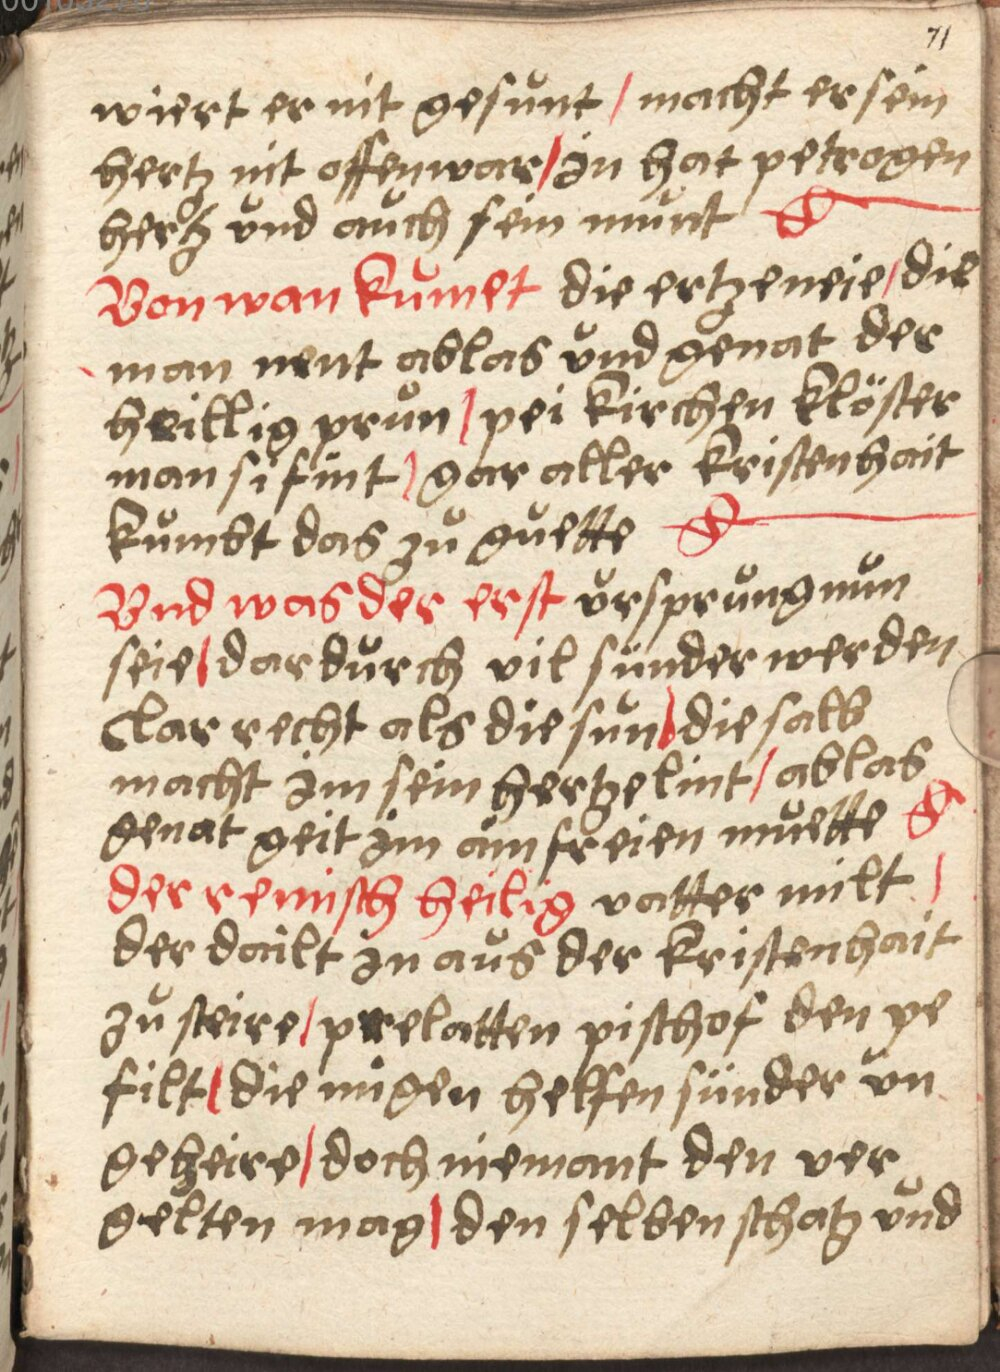 71
wiert er nit gesunt / macht er sein
hertz nit offenwar / in hat petrogen
hertz vnd auch sein munt
Von wan kumet die ertzeneie / die
man nent ablas vnd genat der
heillig prun / pei kirchen klöster
man si fint / gar aller kristenhait
kumbt das zu guette
Vnd was der erst vrsprung nun
seie / dardurch vil sunder werden
Clar recht als die sun / die salb
macht im sein hertze lint / ablas
genat geit im ain freien muette
der remisch heilig vatter milt /
der dailt in aus der kristenhait
zu steire / prelatten pischof den pe
filt / die migen helfen sünder vn
geheire / doch niemant den ver
gelten mag / den selben schatz vnd